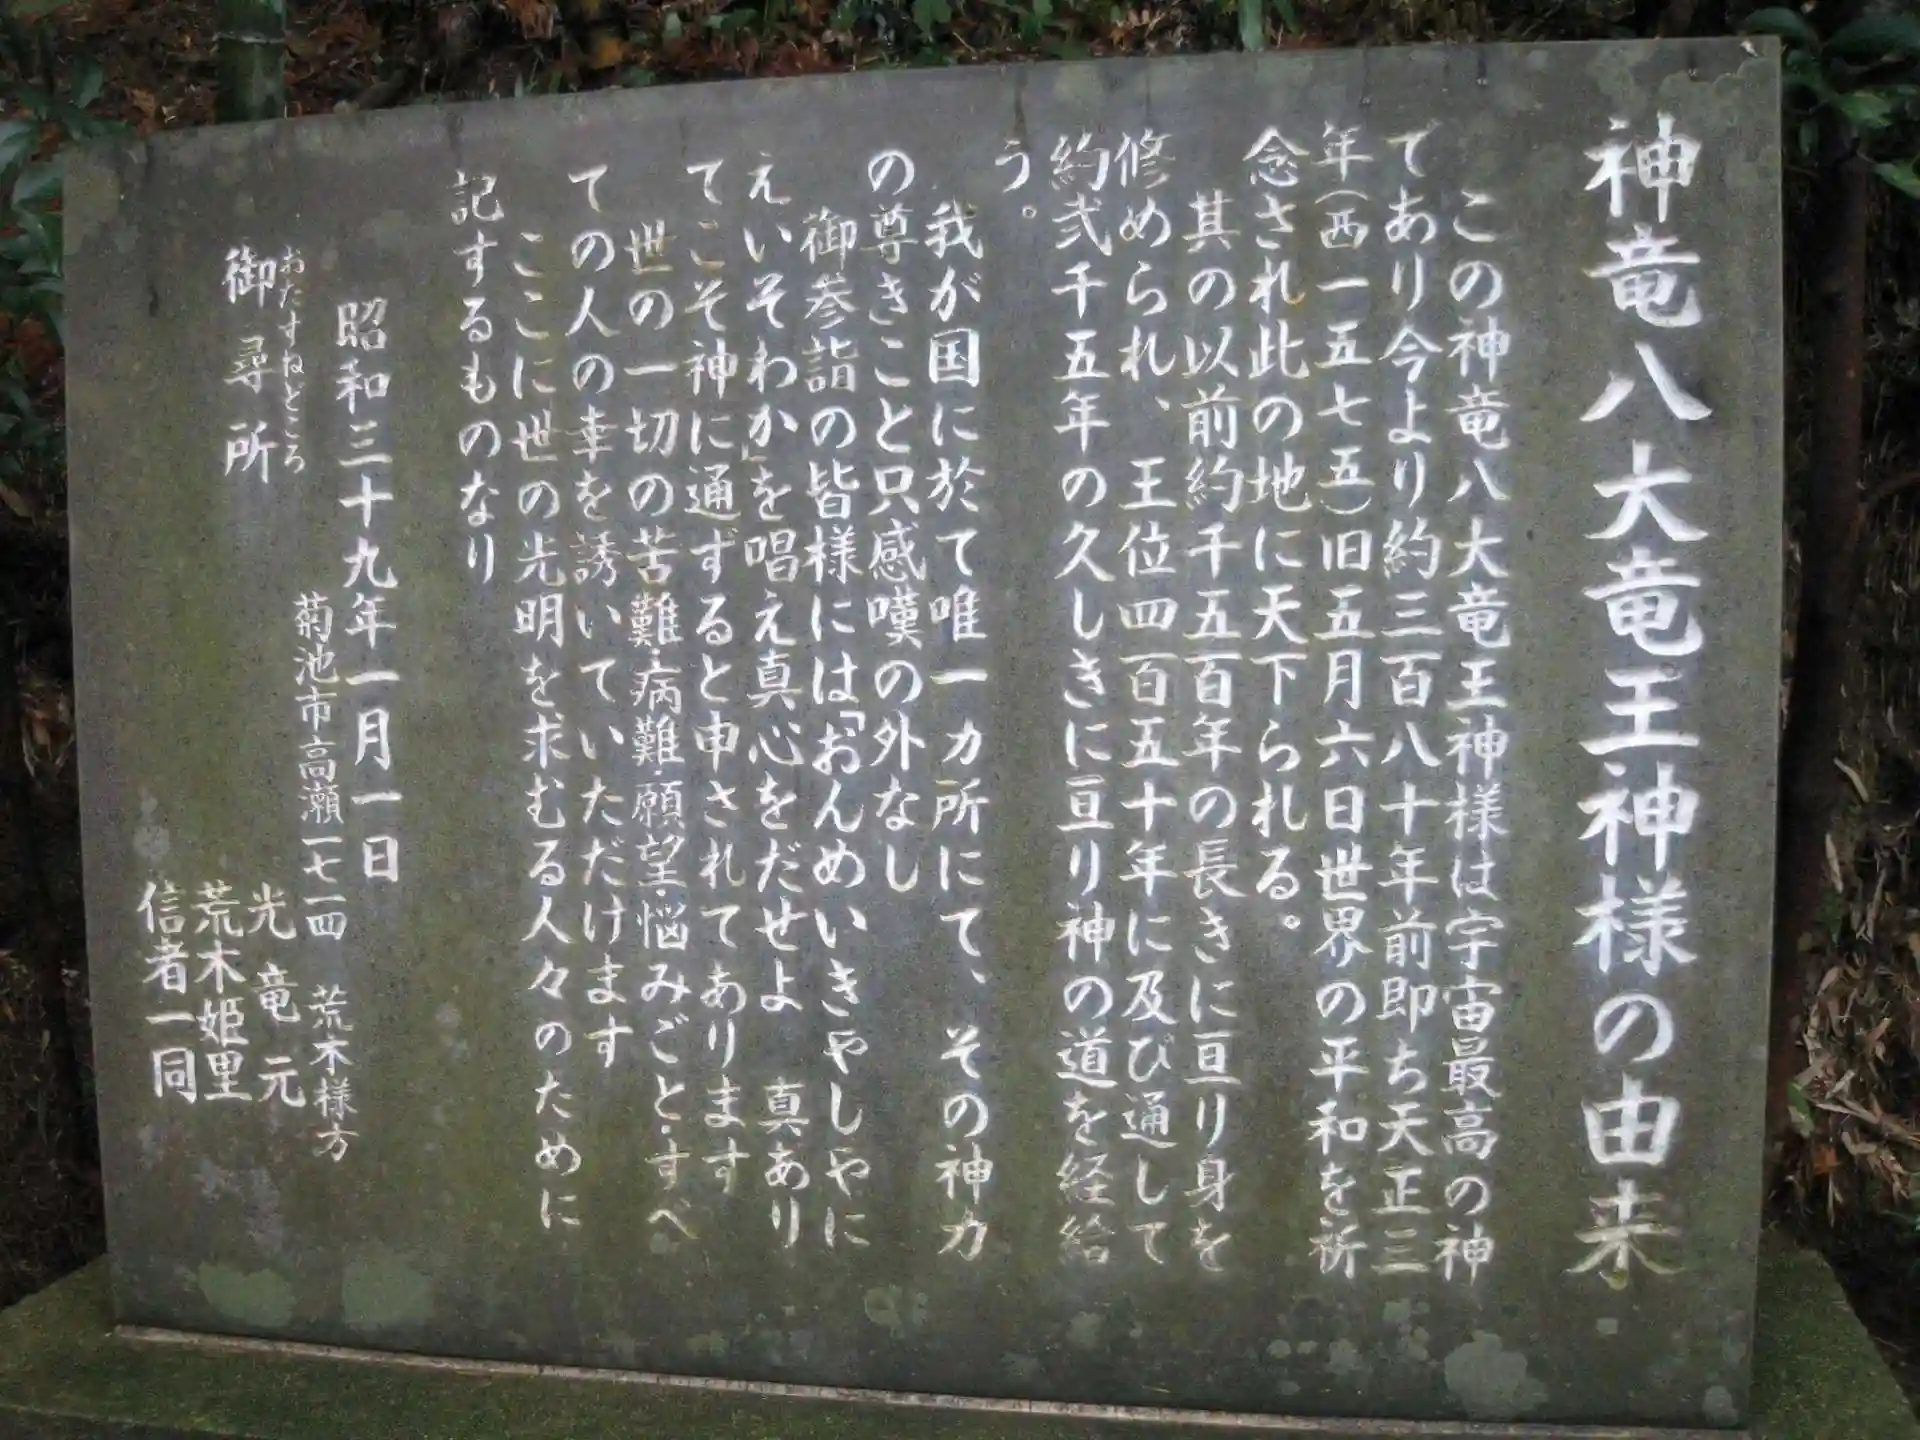 神竜八大竜王神様の由来
この神竜八大竜王神様は宇宙最高の神
であり今より約三百八十年前即ち天正三
年(西一五七五)旧五月六日世界の平和を祈
念され此の地に天下られる。
其の以前約千五百年の長きに亘り身を
修められ、王位四百五十年に及び通して
約弐千五年の久しきに亘り神の道を経給
う。
我が国に於て唯一カ所にて、その神力
の尊きこと只感嘆の外なし
御参詣の皆様には「おんめいきゃしゃに
えいそわか」を唱え真心をだせよ 真あり
てこそ神に通ずると申されてあります
世の一切の苦難・病難・願望・悩みごと・すべ
ての人の車を誘いていただけます
ここに世の光明を求むる人々のために
記するものなり
昭和三十九年一月一日
菊池市高瀬一七一四 荒木様方
おたずねどころ
御尋所
光竜元
荒木姫里
信者一同